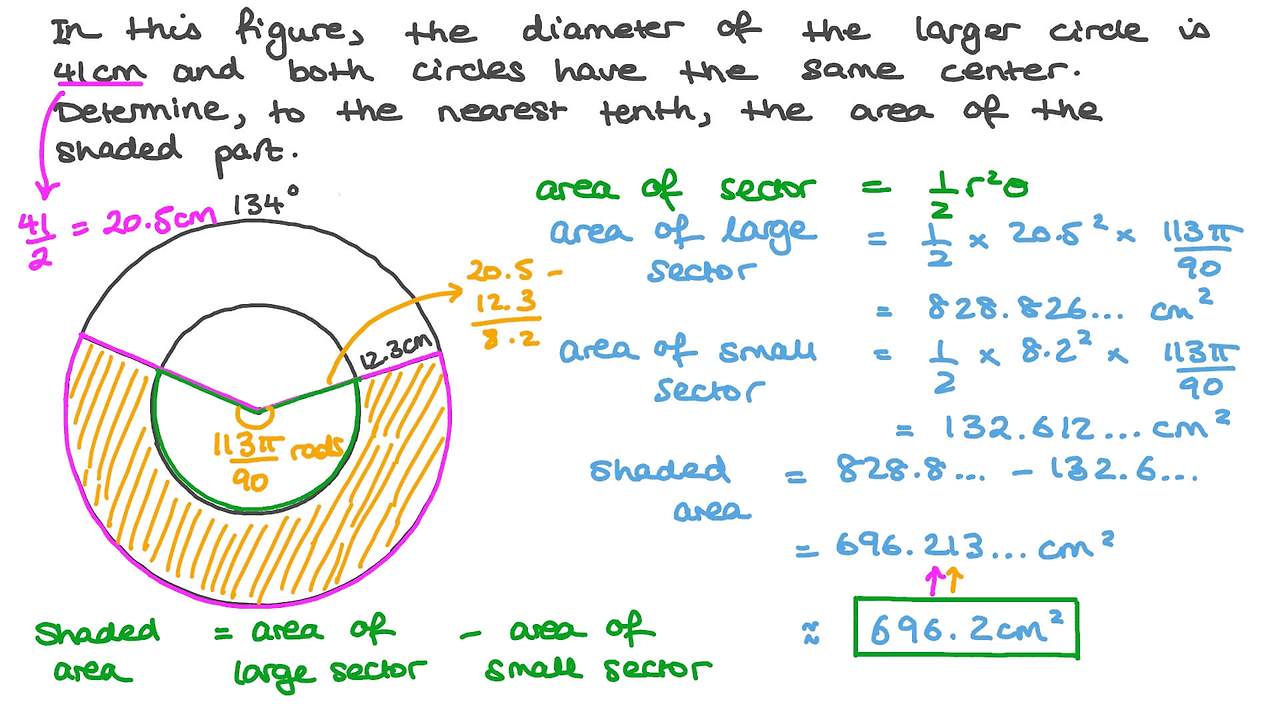 In this figure, the diameter of the larger circle is
41cm and both circles have the same center.
Determine, to the nearest tenth, the area of the
shaded part.
134°
41/2 = 20.5cm
20.5 -
12.3
8.2
12.3cm
113π/90 rads
area of sector = 1/2 r²θ
area of large sector = 1/2 × 20.5² × 113π/90
= 828.826... cm²
area of small sector = 1/2 × 8.2² × 113π/90
= 132.612... cm²
shaded area = 828.8... - 132.6...
= 696.213... cm²
≈ 696.2cm²
shaded area = area of large sector - area of small sector